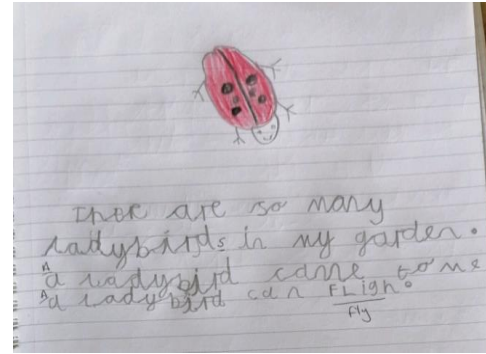 Ther are so many
ladybirds in my garden.
A a ladybird came to me
A a ladybird can FLigh.
Fly